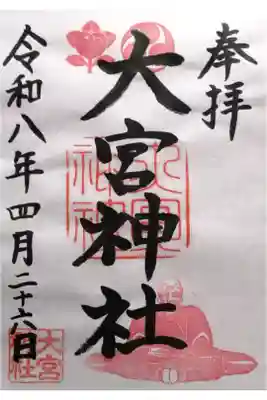 奉拝
大宮神社
令和八年四月二十六日
大宮
神社
大宮
神社